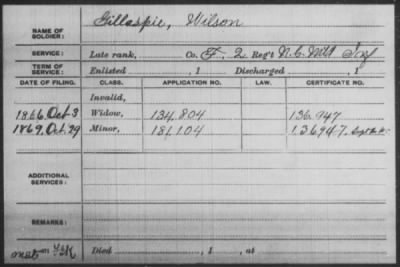 NAME OF SOLDIER: Gillaspie, Wilson
SERVICE: Late rank, Co. F, 2 Reg't N.C. Mtd Inf
TERM OF SERVICE: Enlisted , 1 Discharged , 1
DATE OF FILING. CLASS. APPLICATION NO. LAW. CERTIFICATE NO.
Invalid,
1866 Oct 3 Widow, 134.804 136.947
1869, Oct 29 Minor, 181,104 136947
ADDITIONAL SERVICES:
REMARKS:
Died , 1 , at